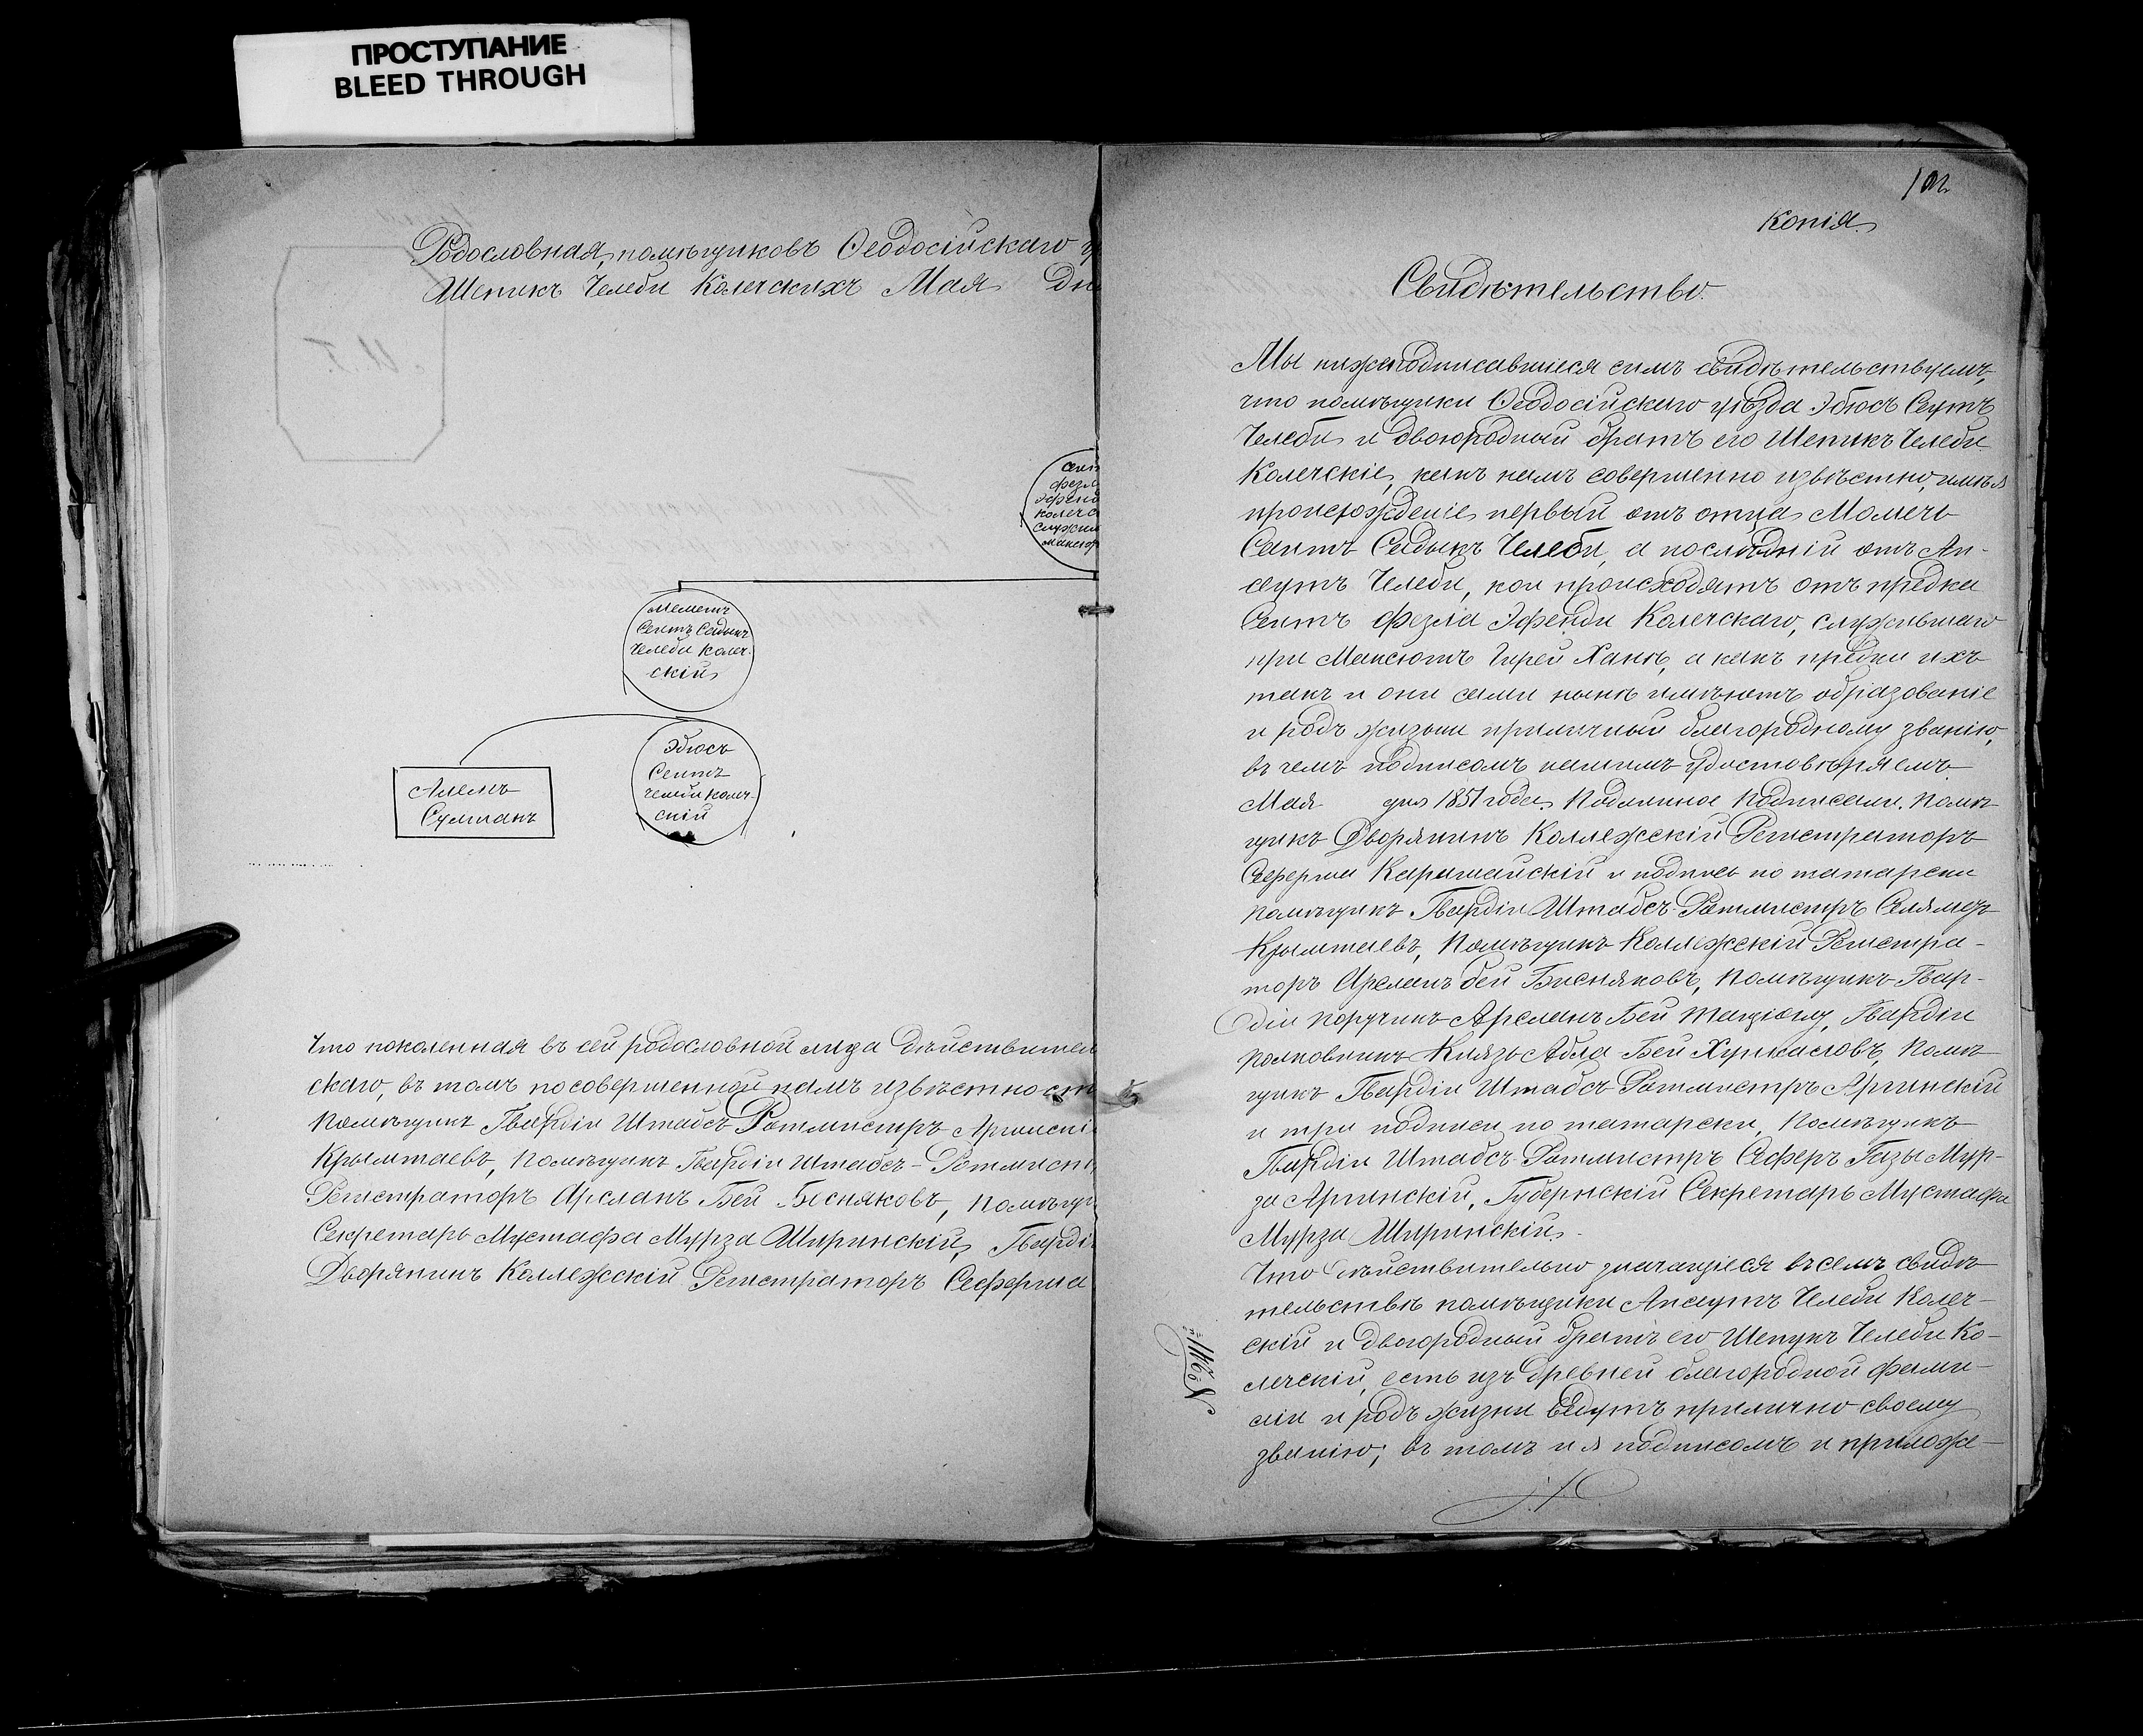 ПРОСТУПАНИЕ
BLEED THROUGH
Родословная, помѣщиковъ Ѳеодосійскаго у
Шепикъ Челеби Колечскихъ Мая Дн
Сеит
фезл
Эфенд
колечс
служил
максюд
Меметъ
Сеитъ Садыкъ
Челеби Колеч-
скій
Эбюсъ
Сеитъ
челеби колеч-
скій
Алемъ
Султанъ
Что поколенная въ сей родословной лица дѣйствител
скаго, въ томъ по совершенной намъ извѣстност
Помѣщикъ Гвардіи Штабсъ Ротмистръ Аргинскі
Крымтаевъ, Помѣщикъ Гвардіи Штабсъ-Ротмист
Регистраторъ Арсланъ Бей Бисняковъ, Помѣщи
Секретарь Мустафа Мурза Ширинскій, Гварді
Дворянинъ Коллежскій Регистраторъ Сеферша
102
Копія
Свидѣтельство.
Мы нижеподписавшіеся симъ свидѣтельствуемъ,
что помѣщики Ѳеодосійскаго уѣзда Эбюсъ Сеутъ
Челеби и двоюродный братъ его Шепикъ Челеби
Колечскіе, какъ намъ совершенно извѣстно, имѣя
происхожденіе первый отъ отца Момечь
Сеитъ Садыкъ Челеби, а послѣдній отъ Ап-
сеутъ Челеби, кои происходятъ отъ предка
Сеитъ Фезла Эфенди Колечскаго, служившаго
при Максютъ Гирей Ханѣ, а какъ предки ихъ
такъ и они сами нынѣ имѣютъ образованіе
и родъ жизни приличный благородному званію,
въ чемъ подписомъ нашимъ удостовѣряемъ.
Мая дня 1851 года. Подлинное подписали. Помѣ-
щикъ Дворянинъ Коллежскій Регистраторъ
Сеферша Карашайскій и подпись по татарски
помѣщикъ Гвардіи Штабсъ-Ротмистръ Селямет
Крымтаевъ, Помѣщикъ Коллежскій Регистра-
торъ Арсланъ бей Бисняковъ, Помѣщикъ Гвар-
діи Поручикъ Арсланъ Бей Тащіоглу, Гвардіи
Полковникъ Князь Абла Бей Хункаловъ, Помѣ-
щикъ Гвардіи Штабсъ-Ротмистръ Аргинскій
и три подписи по татарски, Помѣщикъ
Гвардіи Штабсъ-Ротмистръ Сеферъ Газы Мур-
за Аргинскій, Губернскій Секретарь Мустафа
Мурза Ширинскій.
Что дѣйствительно значащіеся въ семъ свидѣ-
тельствѣ помѣщики Апсеутъ Челеби Колеч-
скій и двоюродный братъ его Шепукъ Челеби Ко-
лечскій, есть изъ древней благородной фами-
ліи и родъ жизни ведутъ прилично своему
званію; въ томъ и я подписомъ и приложе-